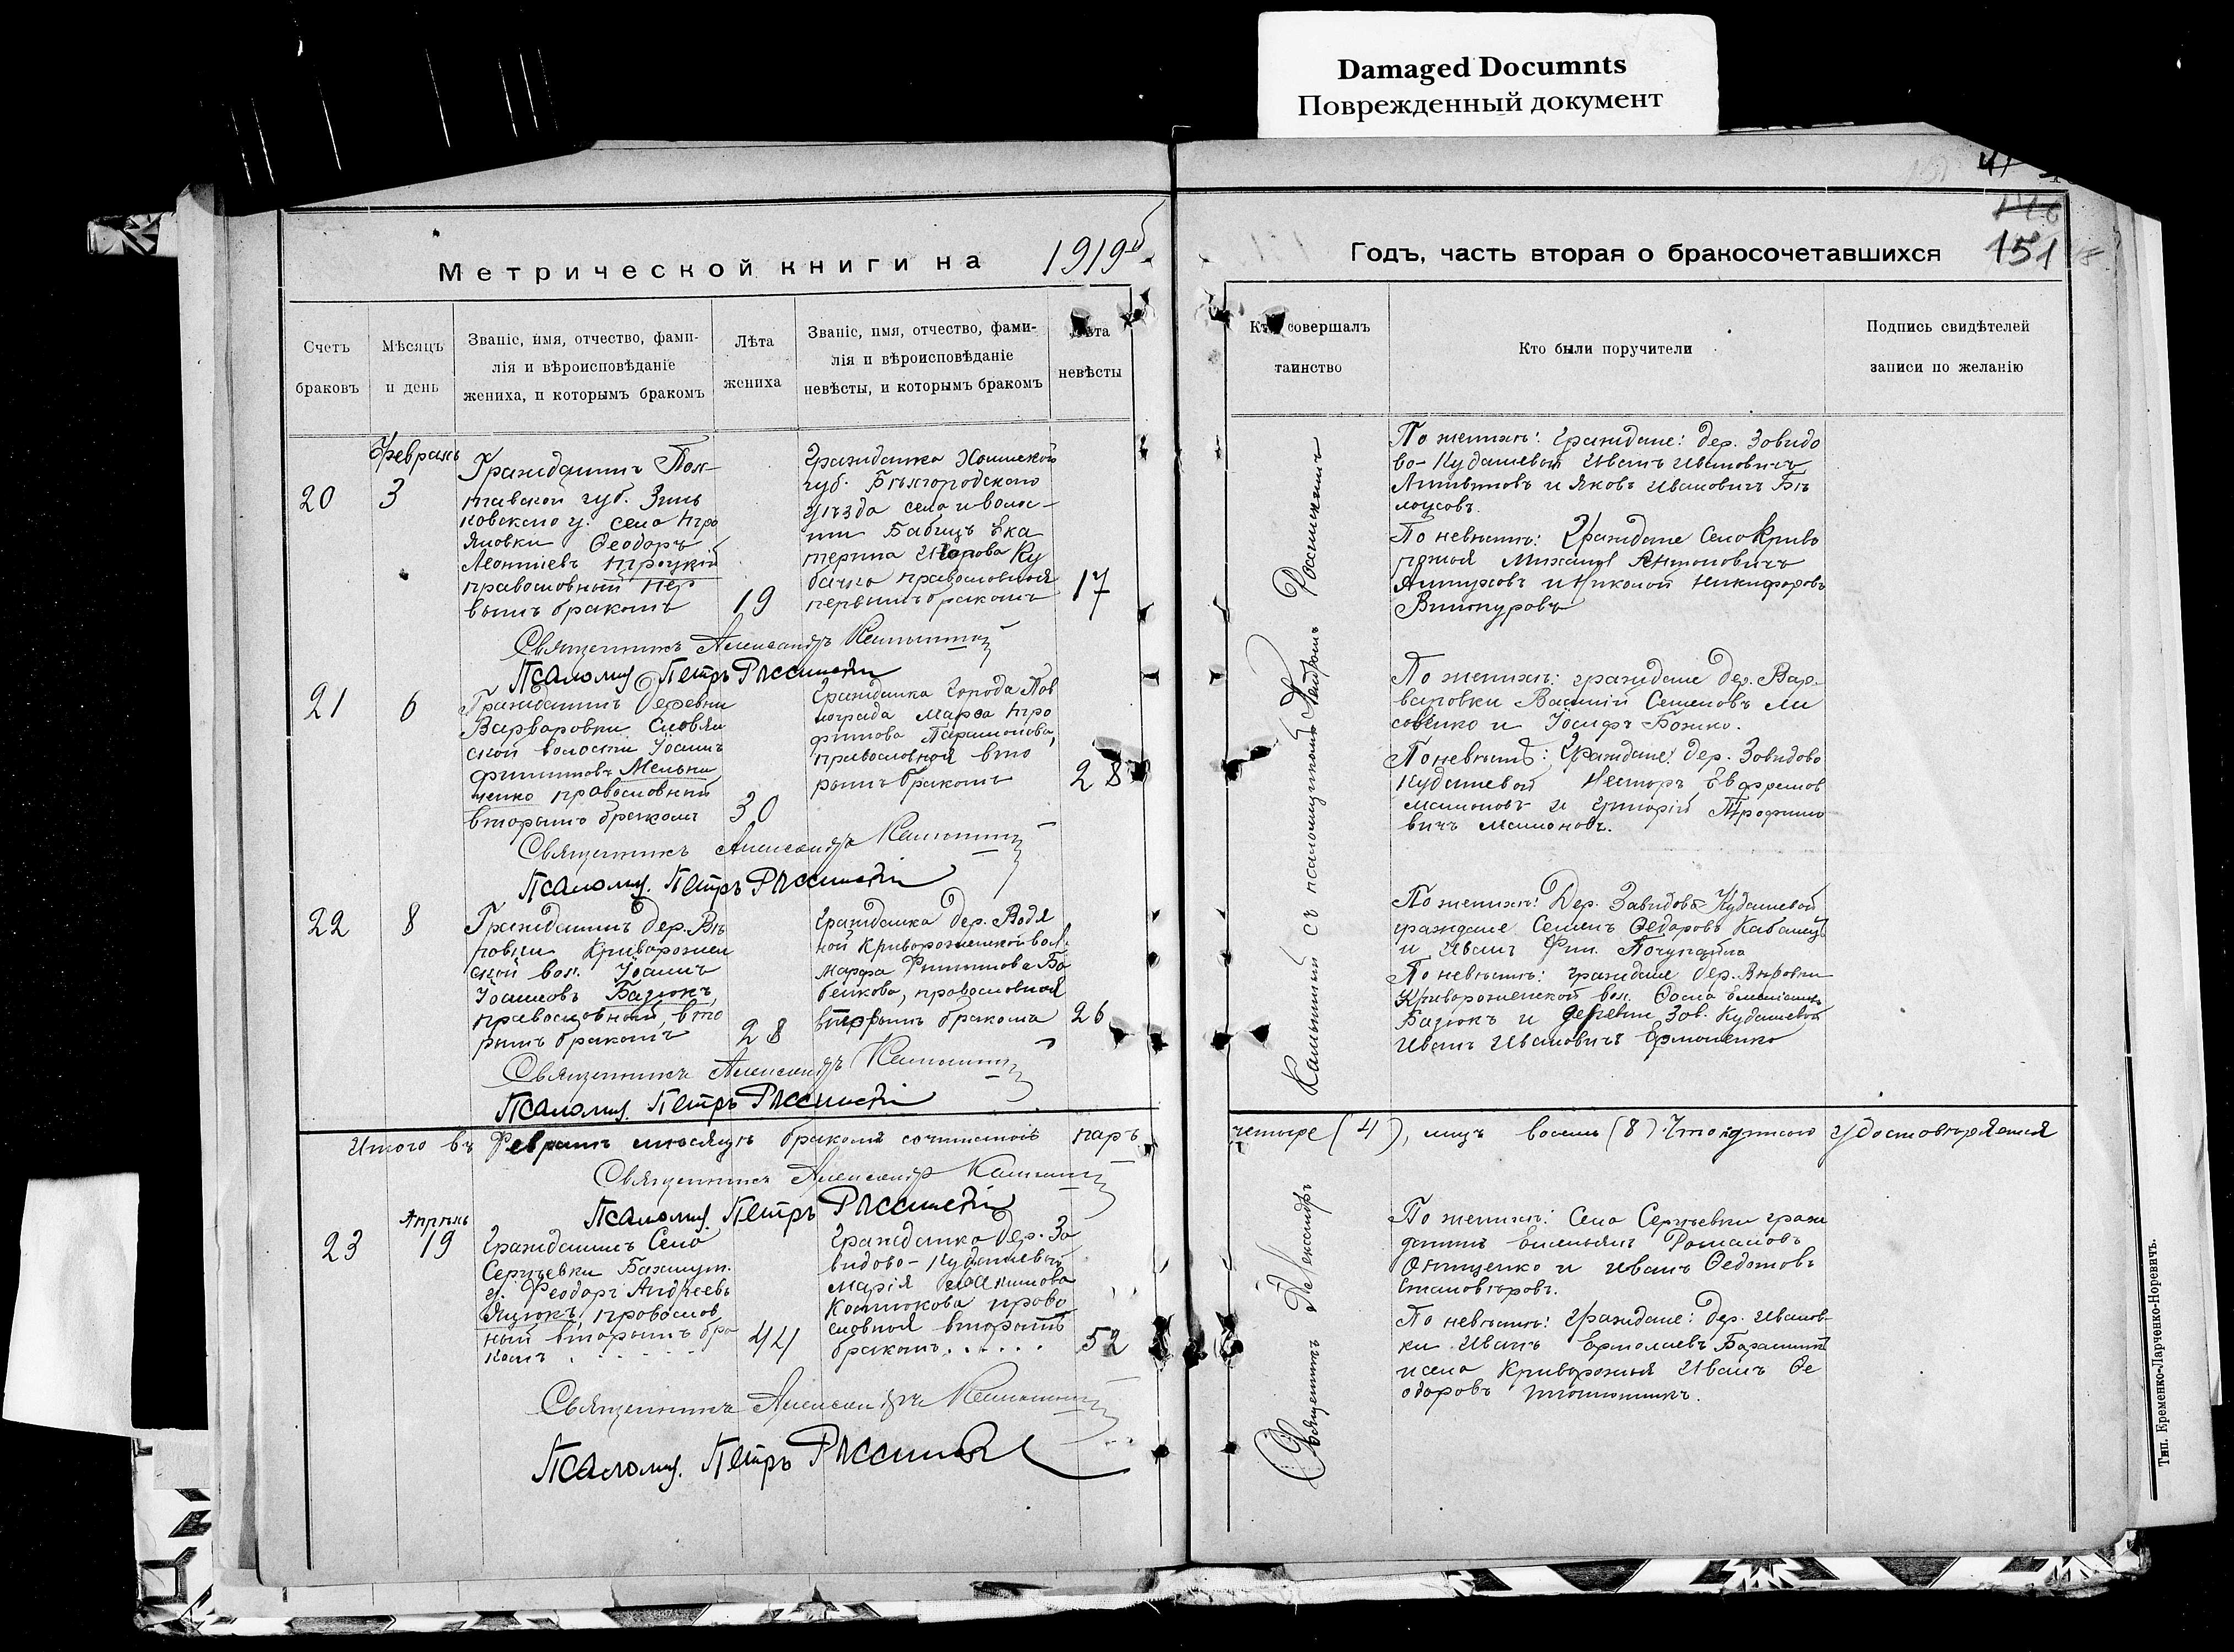 Damaged Documnts
Поврежденный документ
151
Метрической книги на 1919
Годъ, часть вторая о бракосочетавшихся
Счетъ
браковъ
Мѣсяцъ
и день
Званіе, имя, отчество, фами-
лія и вѣроисповѣданіе
жениха, и которымъ бракомъ
Лѣта
жениха
Званіе, имя, отчество, фами-
лія и вѣроисповѣданіе
невѣсты, и которымъ бракомъ
Лѣта
невѣсты
совершалъ
таинство
Кто были поручители
Подпись свидѣтелей
записи по желанію
Февраль
20
3
Гражданинъ Пол-
тавской губ. Зинь
ковскаго у. села
Ѳеодоръ
Леонтіевъ Троцкій
православный пер
вымъ бракомъ
19
Гражданка
губ. Бѣлгородскаго
уѣзда села и воло-
сти Ека
терина Ку
православная
первымъ бракомъ
17
По женихѣ: граждане: дер. Завидо
во-Кудашевой Иванъ Ивановичъ
Литвиновъ и Яковъ Ивановичъ Бѣ
лоусовъ.
По невѣстѣ: Граждане села Криво
рожья Михаилъ Антоновичъ
и Николай Никифоровъ
Винокуровъ
Священникъ Александръ
Псаломщ. Петръ
21
6
Гражданинъ деревни
Варваровки Славян
ской волости Іоаннъ
Филипповъ Мельни
ченко православный
вторымъ бракомъ
30
Гражданка города Пав
лограда Марѳа Тро
фимова
православная вто
рымъ бракомъ
28
По женихѣ: граждане дер. Вар-
варовки Василій Семеновъ Ли
совенко и Іосифъ Божко.
По невѣстѣ: Граждане: дер. Завидово
Кудашевой Несторъ Евфремов
Мамоновъ и Григорій Трофимо
вичъ Мамоновъ.
Священникъ Александръ
Псаломщ. Петръ
22
8
Гражданинъ дер. Вѣ
ровки Криворожен
ской вол. Іоаннъ
Іоанновъ Базюкъ,
православный, вто
рымъ бракомъ
28
Гражданка дер. Водя
ной Криворожской вол.
Марфа Филиппова Ба
бенкова, православная
вторымъ бракомъ
26
По женихѣ: Дер. Завидово-Кудашевой
граждане Семенъ Ѳедоровъ Кабанец
и Иванъ Фил.
По невѣстѣ: граждане дер. Вѣровки
Криворожской вол. Ѳома
Базюкъ и деревни Зав. Кудашевой
Иванъ Ивановичъ Ермоленко
Священникъ Александръ
Псаломщ. Петръ
Итого въ Февралѣ мѣсяцѣ бракомъ сочиталось паръ четыре (4), лицъ восемь (8) Что подписью удостовѣряется
Священникъ Александръ
Псаломщ. Петръ
Апрѣль
23
19
Гражданинъ села
Сергѣевки Бахмут.
у. Феодоръ Андреевъ
Яцюкъ, православ
ный вторымъ бра
комъ
44
Гражданка дер. За
видово-Кудашевой
Марія Акимова
Костюкова право
славная вторымъ
бракомъ
52
По женихѣ: Села Сергѣевки граж
данинъ Емельянъ Романовъ
Онищенко и Иванъ Ѳедотовъ
По невѣстѣ: Граждане: дер. Иванов-
ки Иванъ Ермолаевъ
и села Криворожья Иванъ Ѳе
одоровъ
Священникъ Александръ
Псаломщ. Петръ
Священникъ Александръ съ псаломщикомъ Петромъ
Тип. Еременко-Ларченко-Норевичъ.